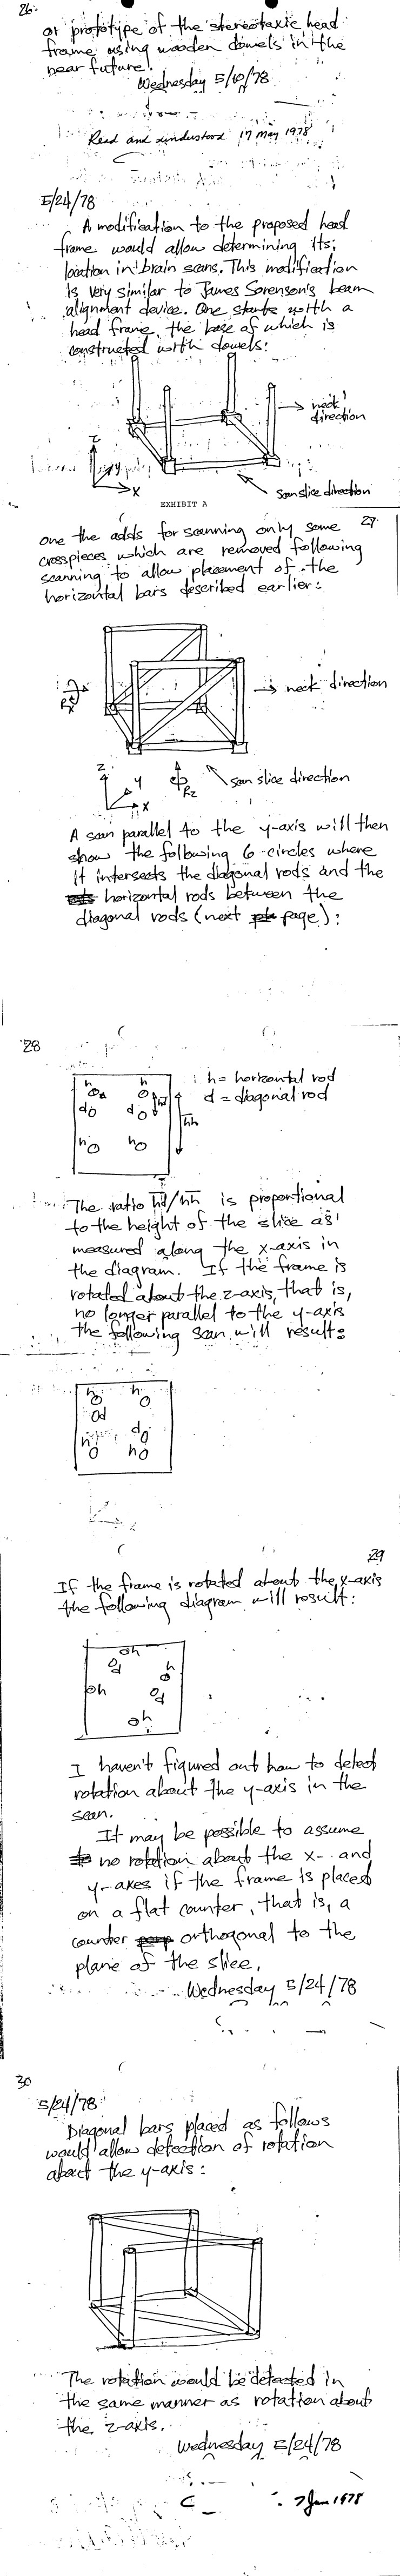 26.
or prototype of the stereotaxic head
frame using wooden dowels in the
near future.
Wednesday 5/10/78
Read and understood 17 May 1978
5/24/78
A modification to the proposed head
frame would allow determining its
location in brain scans. This modification
is very similar to James Sorenson's beam
alignment device. One starts with a
head frame, the base of which is
constructed with dowels:
neck
direction
z
y
x
scan slice direction
EXHIBIT A
27
one the adds for scanning only some
crosspieces which are removed following
scanning to allow placement of the
horizontal bars described earlier:
Rx
neck direction
z
y
x
Rz
scan slice direction
A scan parallel to the y-axis will then
show the following 6 circles where
it intersects the diagonal rods and the
horizontal rods between the
diagonal rods (next page):
28
h h
d d
h h
hd
hh
h = horizontal rod
d = diagonal rod
The ratio hd/hh is proportional
to the height of the slice as
measured along the x-axis in
the diagram. If the frame is
rotated about the z-axis, that is,
no longer parallel to the y-axis
the following scan will result:
h h
d
d
h h
29
If the frame is rotated about the x-axis
the following diagram will result:
h
d h
h d
h
I haven't figured out how to detect
rotation about the y-axis in the
scan.
It may be possible to assume
no rotation about the x- and
y-axes if the frame is placed
on a flat counter, that is, a
counter orthogonal to the
plane of the slice.
Wednesday 5/24/78
30
5/24/78
Diagonal bars placed as follows
would allow detection of rotation
about the y-axis:
The rotation would be detected in
the same manner as rotation about
the z-axis.
Wednesday 5/24/78
7 June 1978